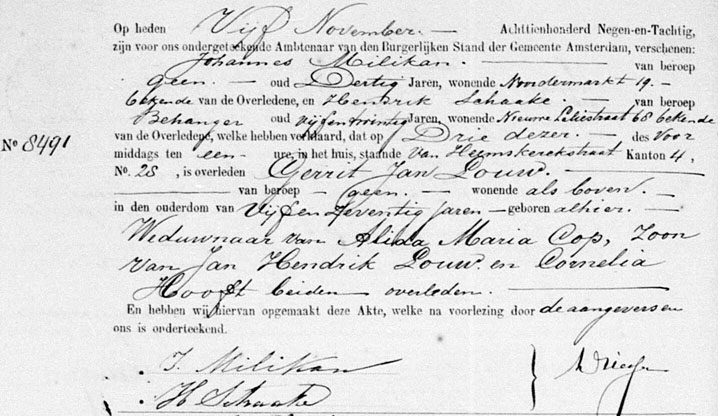 Op heden Vijf November. — Achttienhonderd Negen-en-Tachtig,
zijn voor ons ondergeteekende Ambtenaar van den Burgerlijken Stand der Gemeente Amsterdam, verschenen:
Johannes Milikan. — van beroep
geen. — oud Dertig Jaren, wonende Noordermarkt 19 —
bekende van de Overledene, en Hendrik Schaake — van beroep
Behanger oud vijfentwintig Jaren, wonende Nieuwe Leliestraat 68 bekende
van de Overledene, welke hebben verklaard, dat op Drie dezer. — des Voor
No 8491
middags ten een — ure, in het huis, staande Van Heemskerckstraat Kanton 4,
No. 28, is overleden Gerrit Jan Louw. —
— van beroep — geen. — wonende als boven. —
in den ouderdom van Vijf en Zeventig Jaren — geboren alhier. —
Weduwnaar van Alida Maria Cop, Zoon
van Jan Hendrik Louw. en Cornelia
Hooft beiden overleden. —
En hebben wij hiervan opgemaakt deze Akte, welke na voorlezing door de aangevers en
ons is onderteekend.
J. Milikan
H Schaake